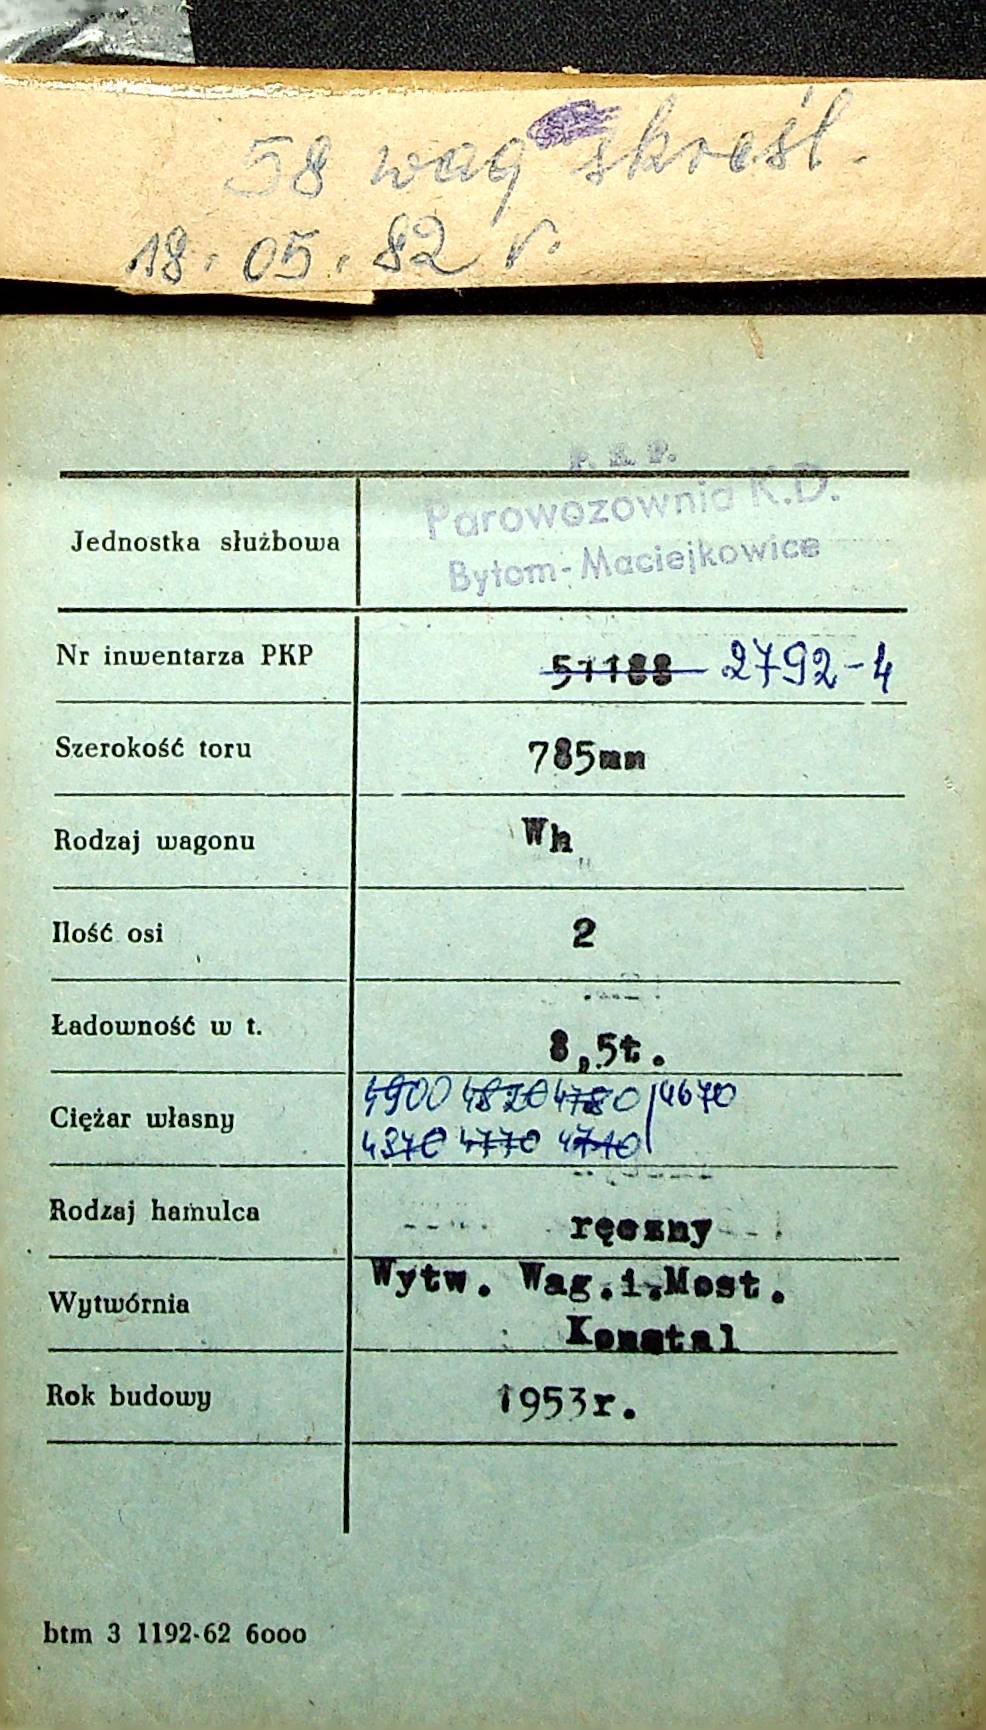 58 wag skreśl.
18.05.82 r.
P. K. P.
Parowozownia K.D.
Bytom-Maciejkowice
Jednostka służbowa
Nr inwentarza PKP 51188 2792-4
Szerokość toru 785mm
Rodzaj wagonu Wh
Ilość osi 2
Ładowność w t. 8,5t.
4900 4820 4780 4670
Ciężar własny
4870 4770 4710
Rodzaj hamulca ręczny
Wytw. Wag.i.Most.
Wytwórnia
Konstal
Rok budowy 1953r.
btm 3 1192-62 6000